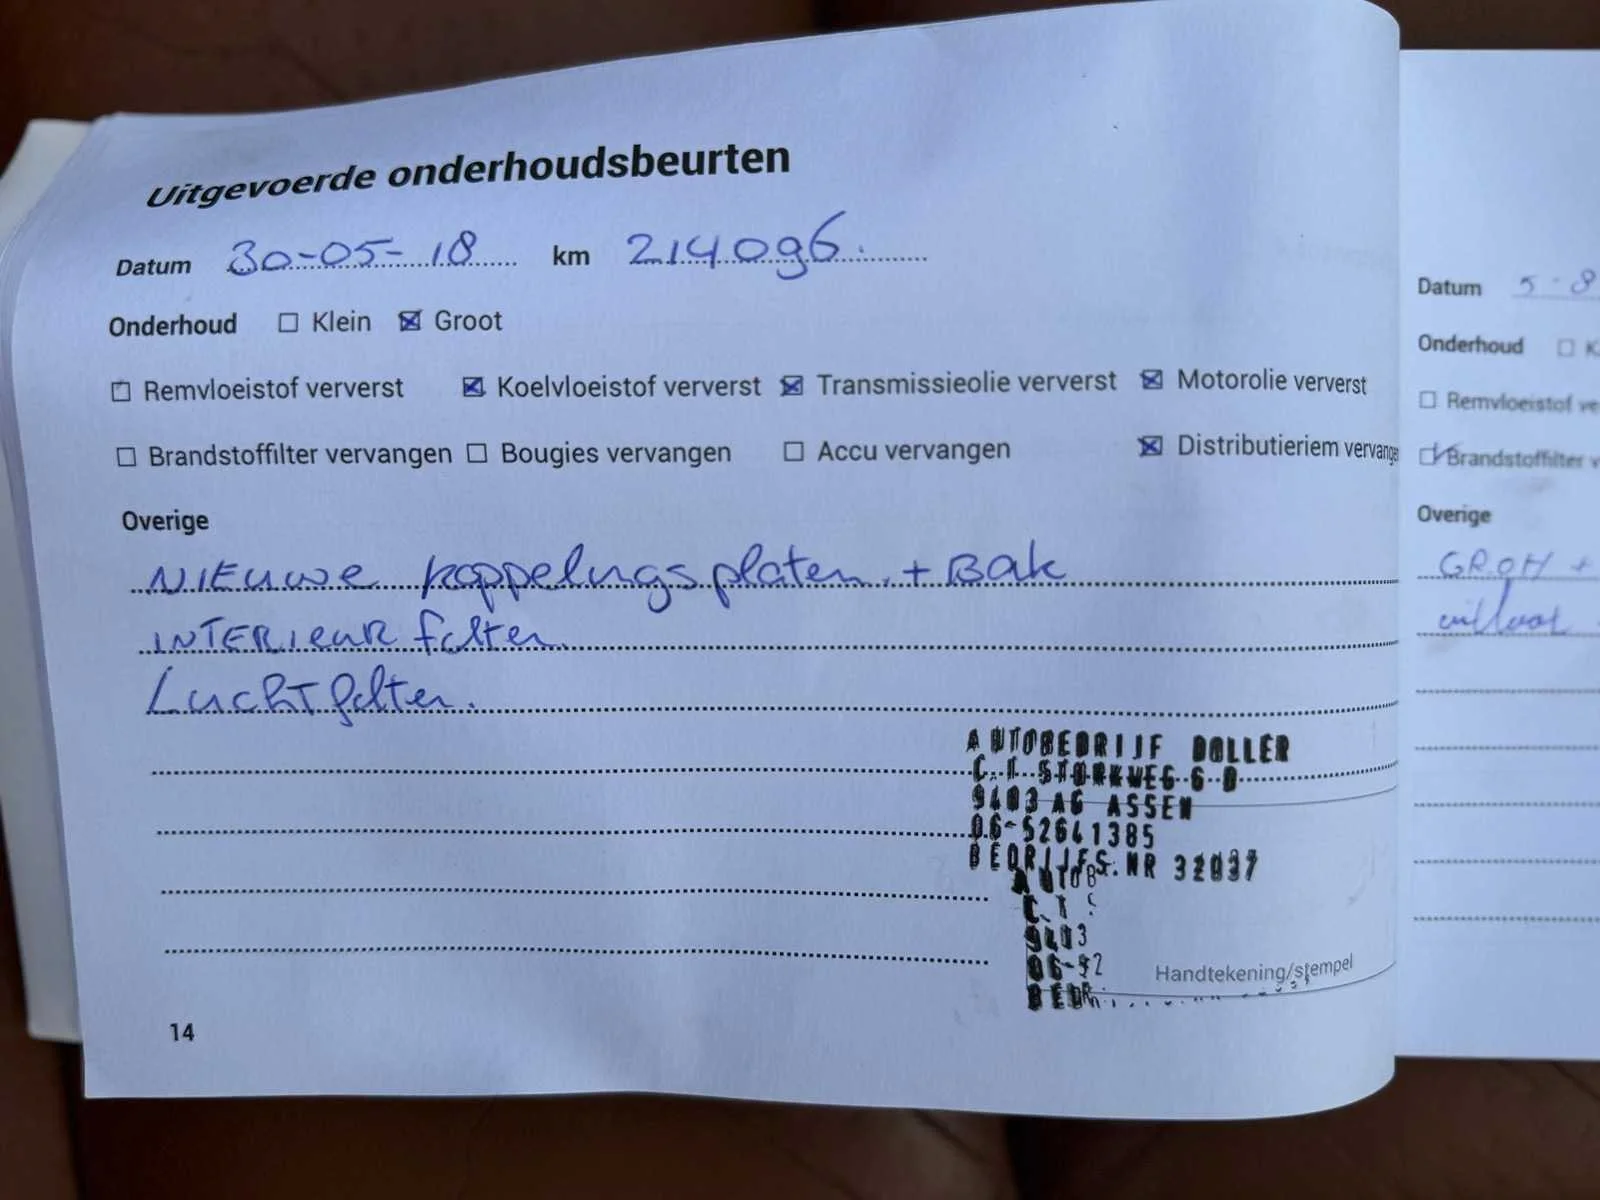 Uitgevoerde onderhoudsbeurten
Datum 30-05-18 km 214096.
Onderhoud Klein Groot
Remvloeistof ververst Koelvloeistof ververst Transmissieolie ververst Motorolie ververst
Brandstoffilter vervangen Bougies vervangen Accu vervangen Distributieriem vervange
Overige
NIEUWE koppelingsplaten + Bak
INTERIEUR filter
Luchtfilter.
AUTOBEDRIJF DOLLER
C.T. STORKWEG 6-D
9403 AG ASSEN
06-52641385
BEDRIJFS.NR 32037
AUTOB
C.T S
9403
06-52
BEDR
Handtekening/stempel
14
Datum 5-8
Onderhoud K
Remvloeistof ve
Brandstoffilter v
Overige
GROH +